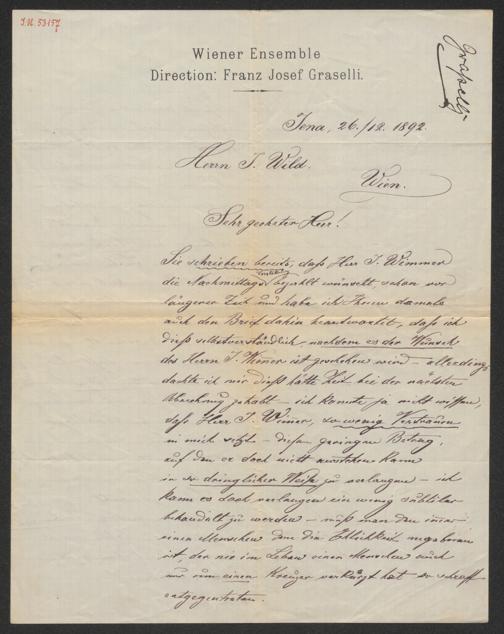 J.N. 53157
Graselli
Wiener Ensemble
Direction: Franz Josef Graselli.
Jena, 26./12. 1892.
Herrn J. Wild.
Wien.
Sehr geehrter Herr!
Sie schrieben bereits, daß Herr J. Wimmer
die Nachmittags bezahlt wünscht, schon vor
längerer Zeit und habe ich Ihnen damals
auch den Brief dahin beantwortet, daß ich
dieß selbstverständlich, nachdem es der Wunsch
des Herrn J. Wimer ist geschehen wird – allerdings
dachte ich mir dieß hätte Zeit bei der nächsten
Abrechnung gehabt – ich konnte ja nicht wissen,
daß Herr J. Wimer, so wenig Vertrauen
in mich setzt – diesen geringen Betrag,
auf den er doch nicht anstehen kann
in so dringlicher Weise zu verlangen – ich
kann es doch verlangen ein wenig subtiler
behandelt zu werden – muß man den immer
einen Menschen dem die Ehrlichkeit angeboren
ist, der nie im Leben einen Menschen auch
nur um einen Kreuzer verkürzt hat so schroff
entgegentreten.